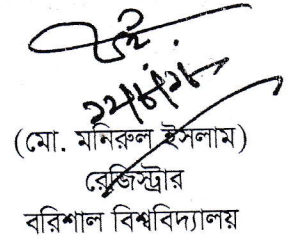 (মো. মনিরুল ইসলাম)
রেজিস্ট্রার
বরিশাল বিশ্ববিদ্যালয়